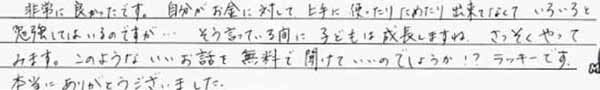 非常に良かったです。自分がお金に対して上手に使ったりためたり出来てなくて いろいろと
勉強してはいるのですが… そう言っている間に 子どもは成長しますね。さっそくやって
みます。このような いいお話を 無料で 聞けていいのでしょうか!? ラッキーです。
本当にありがとうございました。